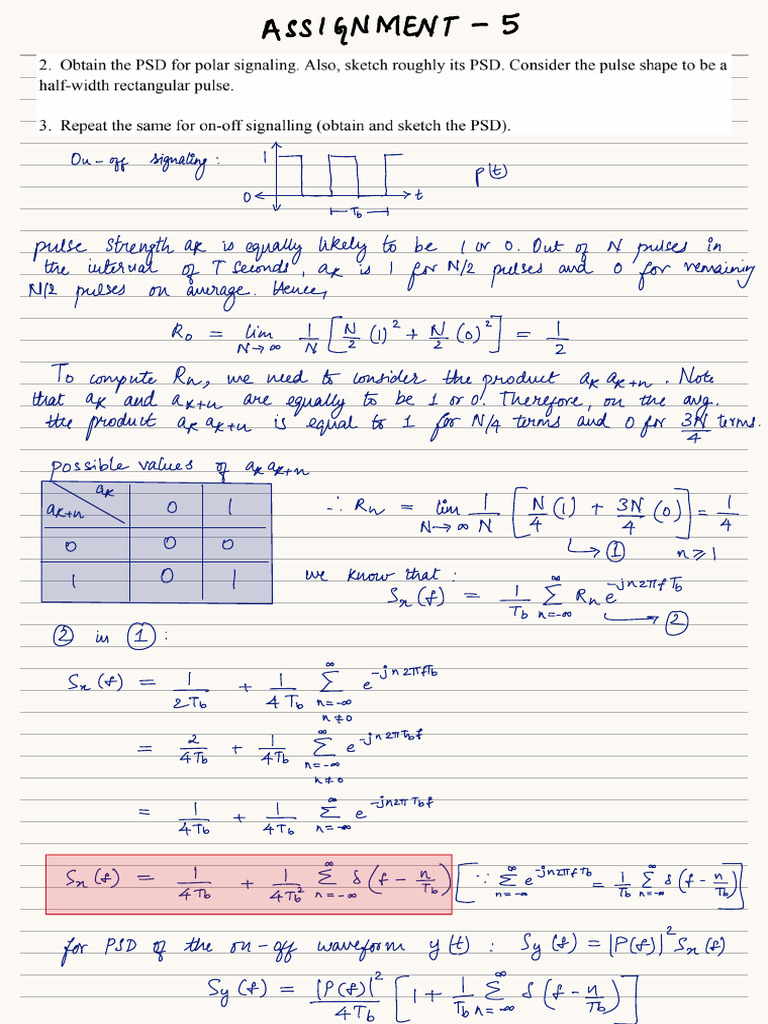 ASSIGNMENT - 5
2. Obtain the PSD for polar signaling. Also, sketch roughly its PSD. Consider the pulse shape to be a
half-width rectangular pulse.
3. Repeat the same for on-off signalling (obtain and sketch the PSD).
On-off signaling :
1
p(t)
0
t
Tb
pulse strength aₖ is equally likely to be 1 or 0. Out of N pulses in
the interval of T seconds, aₖ is 1 for N/2 pulses and 0 for remaining
N/2 pulses on average. Hence,
R₀ = lim N→∞ 1/N [N/2 (1)² + N/2 (0)²] = 1/2
To compute Rn, we need to consider the product aₖ aₖ₊ₙ. Note
that aₖ and aₖ₊ₙ are equally to be 1 or 0. Therefore, on the avg.
the product aₖ aₖ₊ₙ is equal to 1 for N/4 terms and 0 for 3N/4 terms.
possible values of aₖ aₖ₊ₙ
aₖ
aₖ₊ₙ 0 1
0 0 0
1 0 1
∴ Rn = lim N→∞ 1/N [N/4 (1) + 3N/4 (0)] = 1/4
↳ ① n ≥ 1
we know that :
Sx(f) = 1/Tb ∑ n=-∞ ∞ Rn e^-jn2πfTb
→ ②
② in ① :
Sx(f) = 1/2Tb + 1/4Tb ∑ n=-∞ n≠0 ∞ e^-jn2πfTb
= 2/4Tb + 1/4Tb ∑ n=-∞ n≠0 ∞ e^-jn2πTbf
= 1/4Tb + 1/4Tb ∑ n=-∞ ∞ e^-jn2πTbf
Sx(f) = 1/4Tb + 1/4Tb² ∑ n=-∞ ∞ δ(f - n/Tb) [∵ ∑ n=-∞ ∞ e^-jn2πfTb = 1/Tb ∑ n=-∞ ∞ δ(f - n/Tb)]
for PSD of the on-off waveform y(t) : Sy(f) = |P(f)|² Sx(f)
Sy(f) = |P(f)|²/4Tb [1 + 1/Tb ∑ n=-∞ ∞ δ(f - n/Tb)]